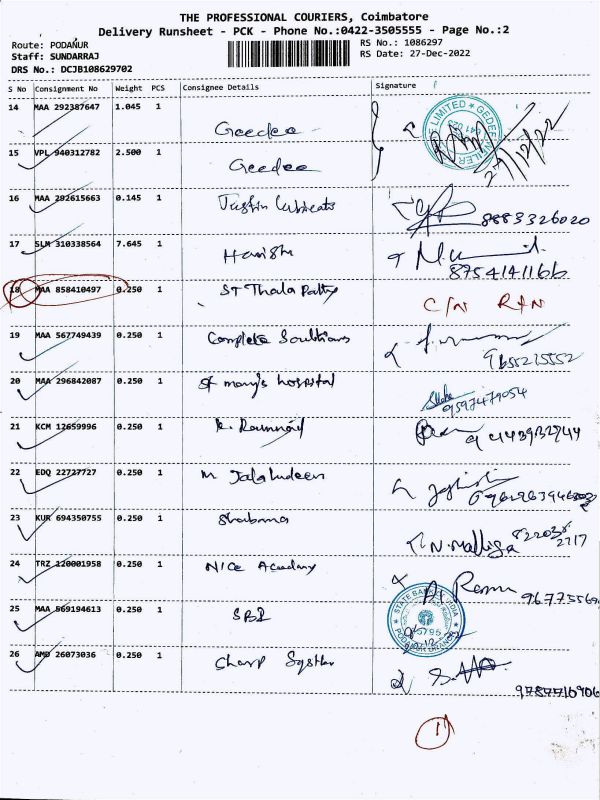 THE PROFESSIONAL COURIERS, Coimbatore
Delivery Runsheet - PCK - Phone No.:0422-3505555 - Page No.:2
Route: PODANUR
RS No.: 1086297
Staff: SUNDARRAJ
RS Date: 27-Dec-2022
DRS No.: DCJB108629702
S No Consignment No Weight PCS Consignee Details Signature
14 MAA 292387647 1.045 1 Geedee
15 VPL 940312782 2.500 1 Geedee 27/12/22
16 MAA 292615663 0.145 1 8883326020
17 SLM 310338564 7.645 1 Harish 8754141166
18 MAA 858410497 0.250 1 ST Thala C/N R/N
19 MAA 567749439 0.250 1 Complete 9655215552
20 MAA 296842087 0.250 1 St mary's hospital 9597479054
21 KCM 12659996 0.250 1 K.
22 EDQ 22727727 0.250 1 M Jalaludeen
23 KUR 694350755 0.250 1 Shabana N. Malliga 822038
2717
24 TRZ 120001958 0.250 1 Nice Academy
25 MAA 569194613 0.250 1 SBI STATE BANK OF INDIA
26 AMD 26073036 0.250 1 Sharp